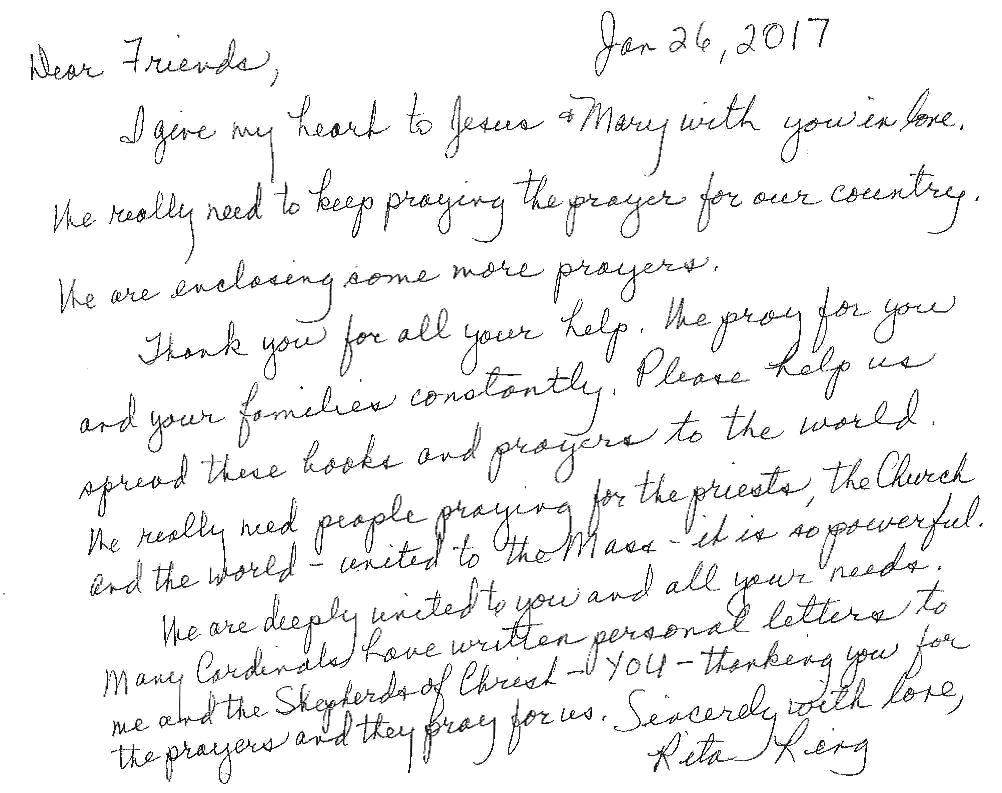 Jan 26, 2017
Dear Friends,
I give my heart to Jesus & Mary with you in love.
We really need to keep praying the prayer for our country.
We are enclosing some more prayers.
Thank you for all your help. We pray for you
and your families constantly. Please help us
spread these books and prayers to the world.
We really need people praying for the priests, the Church
and the world - united to the Mass - it is so powerful.
We are deeply united to you and all your needs.
Many Cardinals have written personal letters to
me and the Shepherds of Christ - YOU - thanking you for
the prayers and they pray for us. Sincerely with love,
Rita Ring